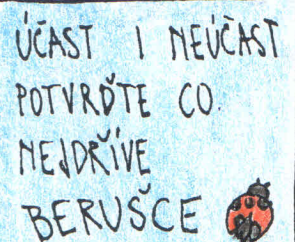 ÚČAST I NEÚČAST
POTVRĎTE CO
NEJDŘÍVE
BERUŠCE